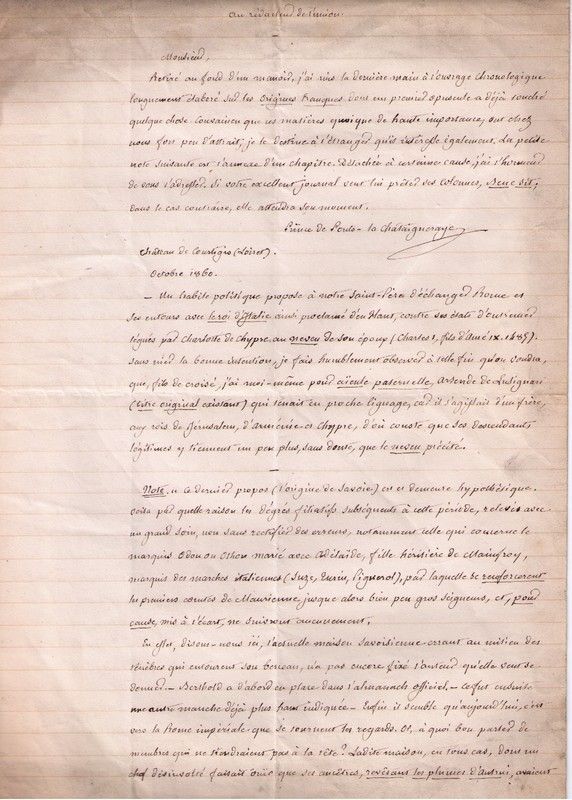 Au rédacteur de l'union.
Monsieur,
Retiré au fond d'un manoir, j'ai mis la dernière main à l'ouvrage chronologique
longuement élaboré sur les origines franques dont un premier opuscule a déjà touché
quelque chose. Convaincu que ces matières quoique de haute importance, ont chez
nous fort peu d'attrait, je le destine à l'étranger qu'il intéresse également. La petite
note suivante est l'annexe d'un chapitre. Détachée à certaine cause, j'ai l'honneur
de vous l'adresser. Si votre excellent journal veut lui prêter ses colonnes, bene sit;
dans le cas contraire, elle attendra son moment.
Prince de Pons-la Châtaigneraye
Château de Courtigis (Loiret).
Octobre 1860.
— Un habile politique propose à notre Saint-Père d'échanger Rome et
ses entours avec le roi d'Italie ainsi proclamé d'en haut, contre ses états d'outremer
légués par Charlotte de Chypre au neveu de son époux (Charles 1, fils d'Amé IX. 1485).
Sans nier la bonne intention, je fais humblement observer à telle fin qu'on voudra,
que, fils de croisé, j'ai moi-même pour aïeule paternelle, Arsende de Lusignan
(titre original existant) qui tenait en proche lignage, car il s'agissait d'un frère,
aux rois de Jérusalem, d'Arménie et Chypre, d'où conste que ses descendants
légitimes y tiennent un peu plus, sans doute, que le neveu précité.
—
Note, ce dernier propos (l'origine de Savoie) en est demeuré hypothétique.
Voilà par quelle raison les dégrés filiatifs subséquents à cette période, relevés avec
un grand soin, non sans rectifier des erreurs, notamment celle qui concerne le
marquis Odon ou Othon marié avec Adélaïde, fille héritière de Mainfroy,
marquis des marches italiennes (Suze, Turin, Pignerol), par laquelle se renforcèrent
les premiers comtes de Maurienne jusque alors bien peu gros seigneurs, et, pour
cause, mis à l'écart, ne suivront aucunement.
En effet, disons-nous ici, l'actuelle maison savoisienne errant au milieu des
ténèbres qui entourent son berceau, n'a pas encore fixé l'auteur qu'elle veut se
donner. — Berthold a d'abord eu place dans l'almanach officiel. — Ce fut ensuite
une autre manche déjà plus haut indiquée — Enfin il semble qu'aujourd'hui, c'est
vers la Rome impériale que se tournent les regards. Or, à quoi bon parler de
membres qui ne tiendraient pas à la tête? Ladite maison, en tous cas, dont un
chef désinvolte faisait dire que ses ancêtres, revêtant les plumes d'autrui, avaient